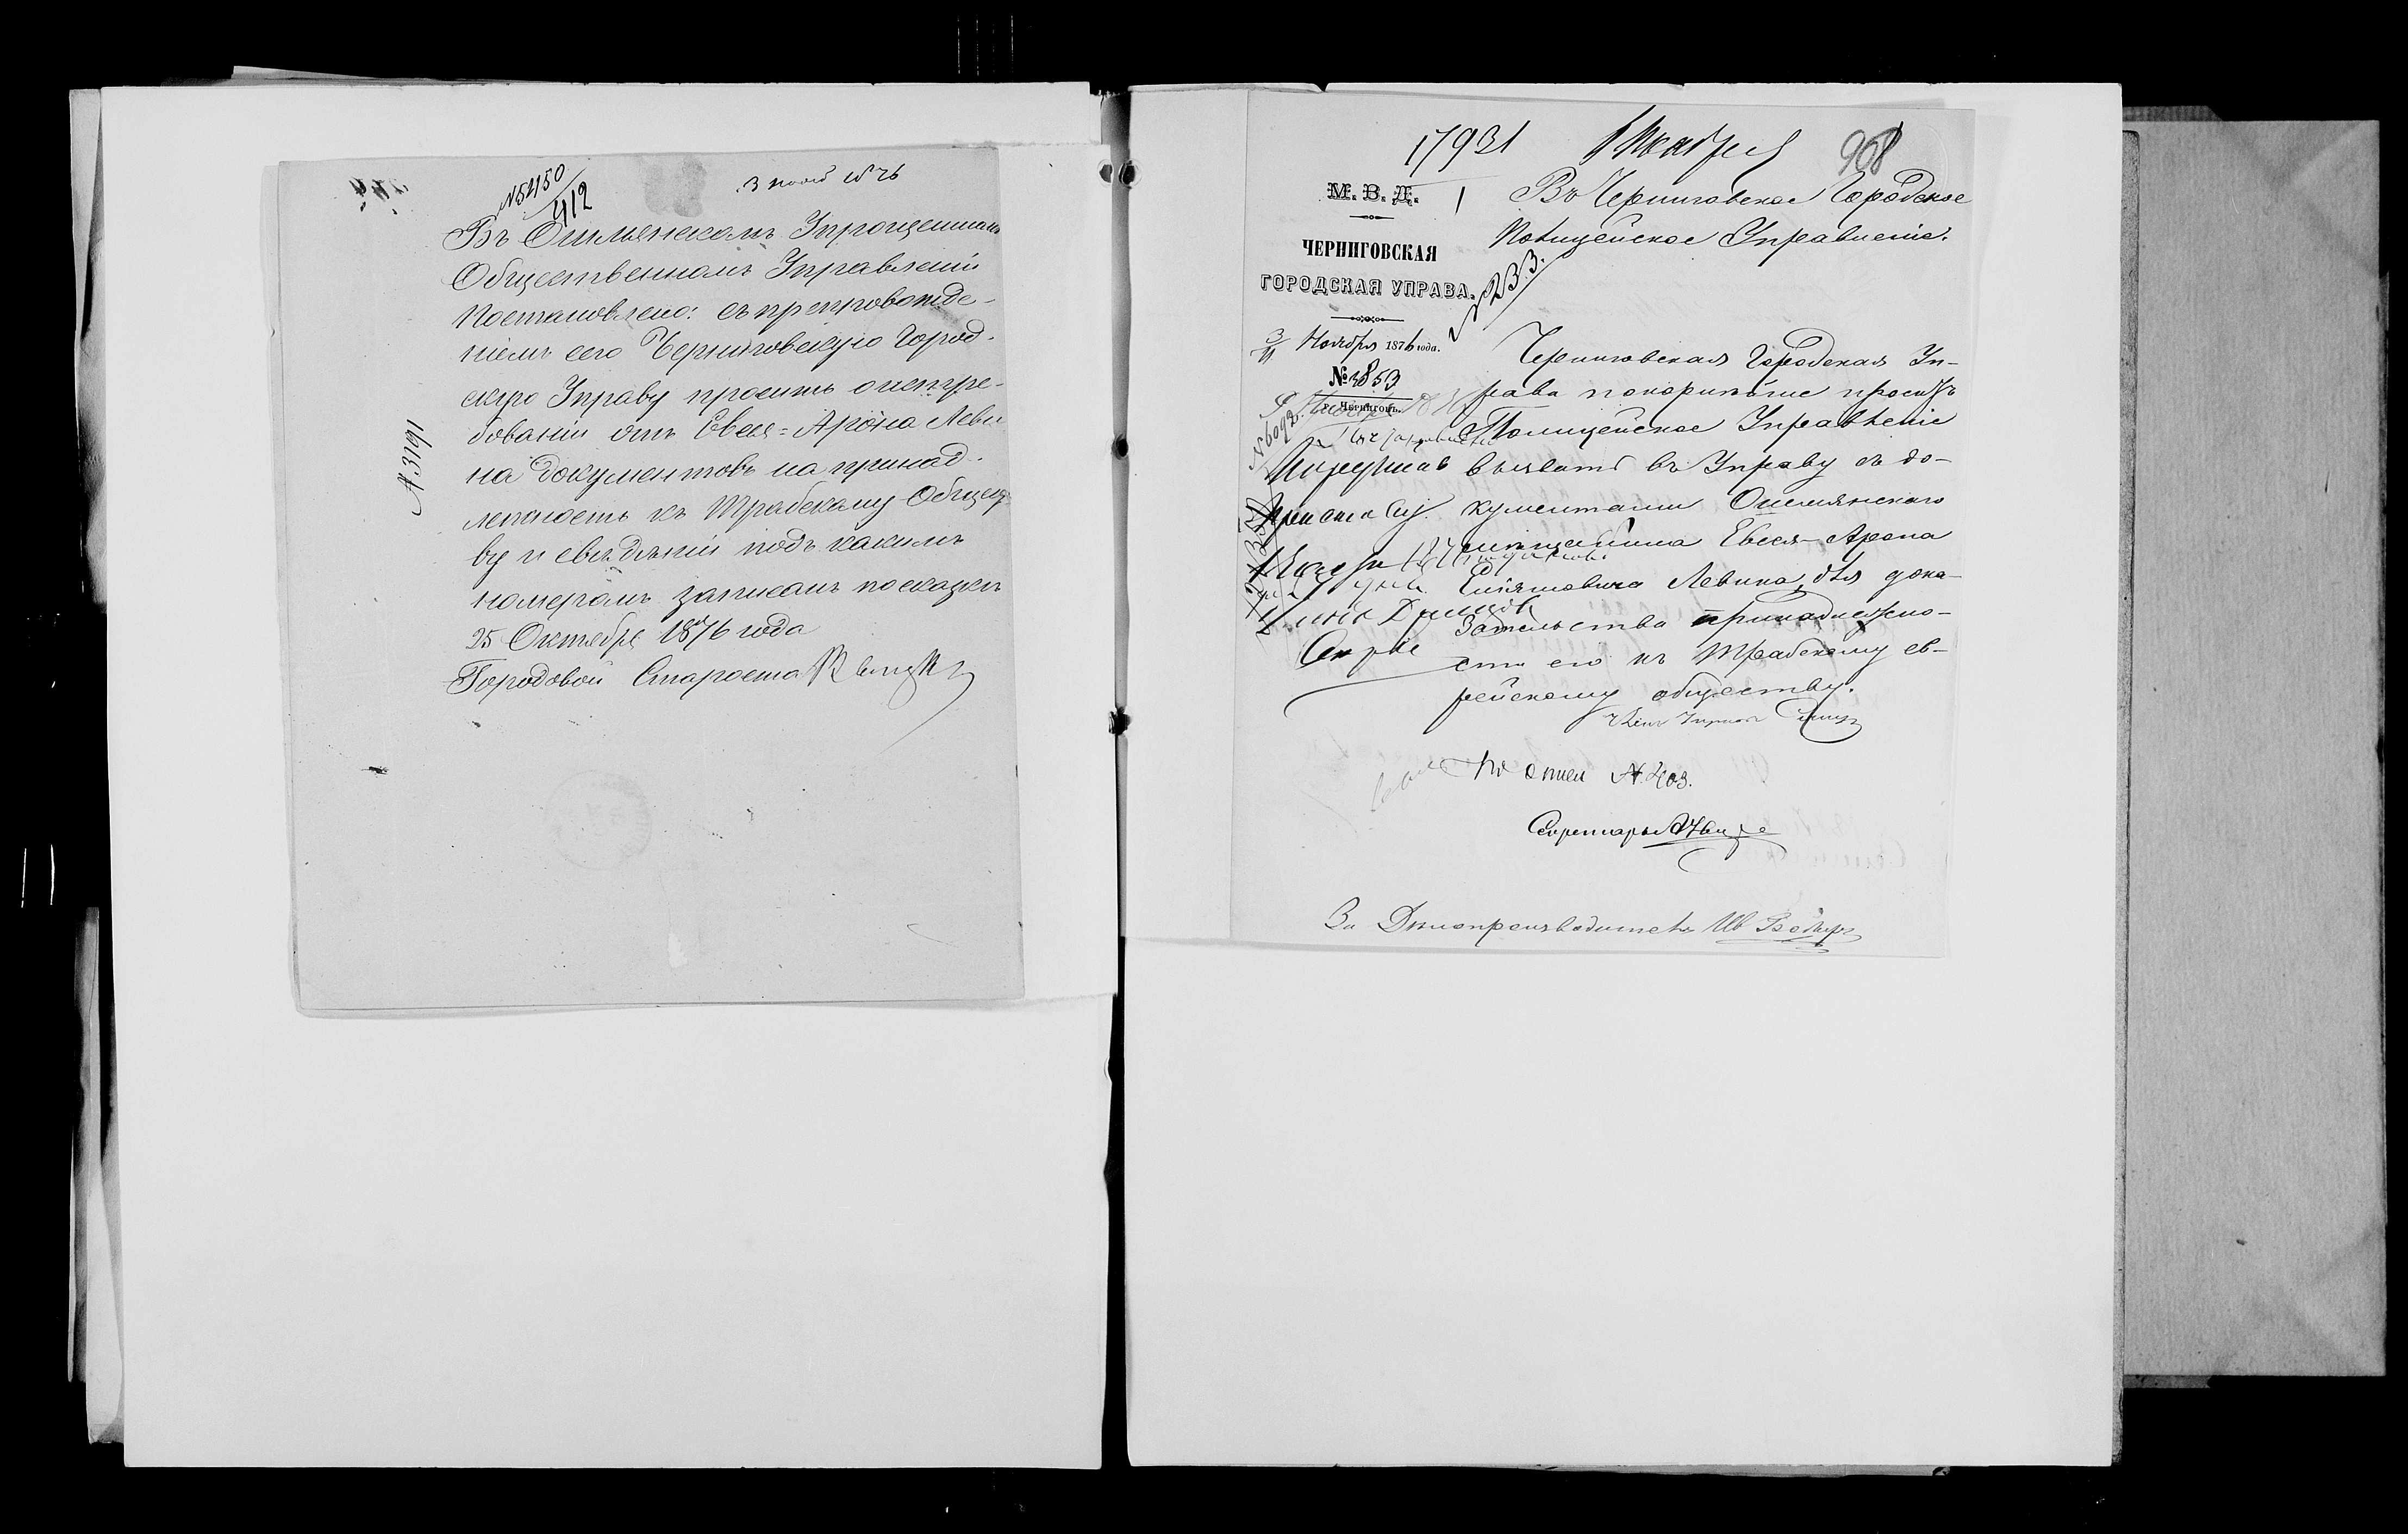 №5450
412
3 нояб 1876
Въ Ошмянскомъ Упрощенномъ
Общественномъ Управленіи
Постановлено: съ препровожде-
ніемъ сего Черниговскую Город-
скую Управу просить о истре-
бованіи отъ Евсея=Арона Леви
на документовъ на принад-
лежность къ Трабскому Общест
ву и свѣдѣній подъ какимъ
номеромъ записанъ по сказкѣ
25 Октября 1876 года
Городовой Староста
№.3191
17931
968
М. В. Д.
ЧЕРНИГОВСКАЯ
ГОРОДСКАЯ УПРАВА.
3/11 Ноября 1876 года.
№ 3853
г. Черниговъ.
№233.
Въ Черниговское Городское
Полицейское Управленіе.
Черниговская Городская Уп-
рава покорнѣйше проситъ
Полицейское Управленіе
вызвать въ Управу съ до-
кументами Ошмянскаго
мѣщанина Евсея-Арона
Левина, для дока-
зательства принадлежно-
сти его къ Трабскому ев-
рейскому обществу.
Членъ Управы
По описи №.403.
Секретарь
За Дѣлопроизводителя